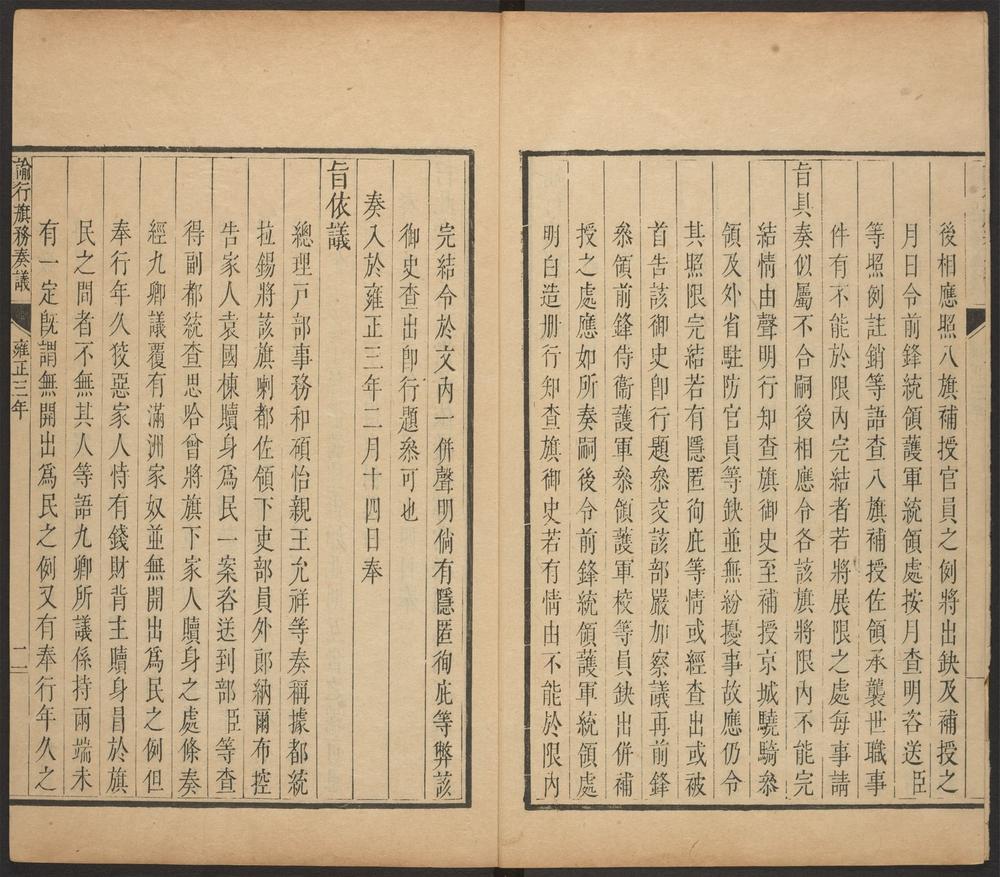 後相應照八旗補授官員之例將出缺及補授之
月日令前鋒統領護軍統領處按月查明咨送臣
等照例註銷等語查八旗補授佐領承襲世職事
件有不能於限內完結者若將展限之處每事請
旨具奏似屬不合嗣後相應令各該旗將限內不能完
結情由聲明行知查旗御史至補授京城驍騎叅
領及外省駐防官員等缺並無紛擾事故應仍令
其照限完結若有隱匿徇庇等情或經查出或被
首告該御史卽行題叅交該部嚴加察議再前鋒
叅領前鋒侍衞護軍叅領護軍校等員缺出併補
授之處應如所奏嗣後令前鋒統領護軍統領處
明白造册行知查旗御史若有情由不能於限內
完結令於文內一併聲明倘有隱匿徇庇等弊該
御史查出卽行題叅可也
奏入於雍正三年二月十四日奉
旨依議
總理戸部事務和碩怡親王允祥等奏稱據都統
拉錫將該旗喇都佐領下吏部員外郞納爾布控
告家人袁國棟贖身爲民一案咨送到部臣等查
得副都統查思哈曾將旗下家人贖身之處條奏
經九卿議覆有滿洲家奴並無開出爲民之例但
奉行年久狡惡家人恃有錢財背主贖身昌於旗
民之間者不無其人等語九卿所議係持兩端未
有一定旣謂無開出爲民之例又有奉行年久之
諭行旗務奏議
雍正三年
二